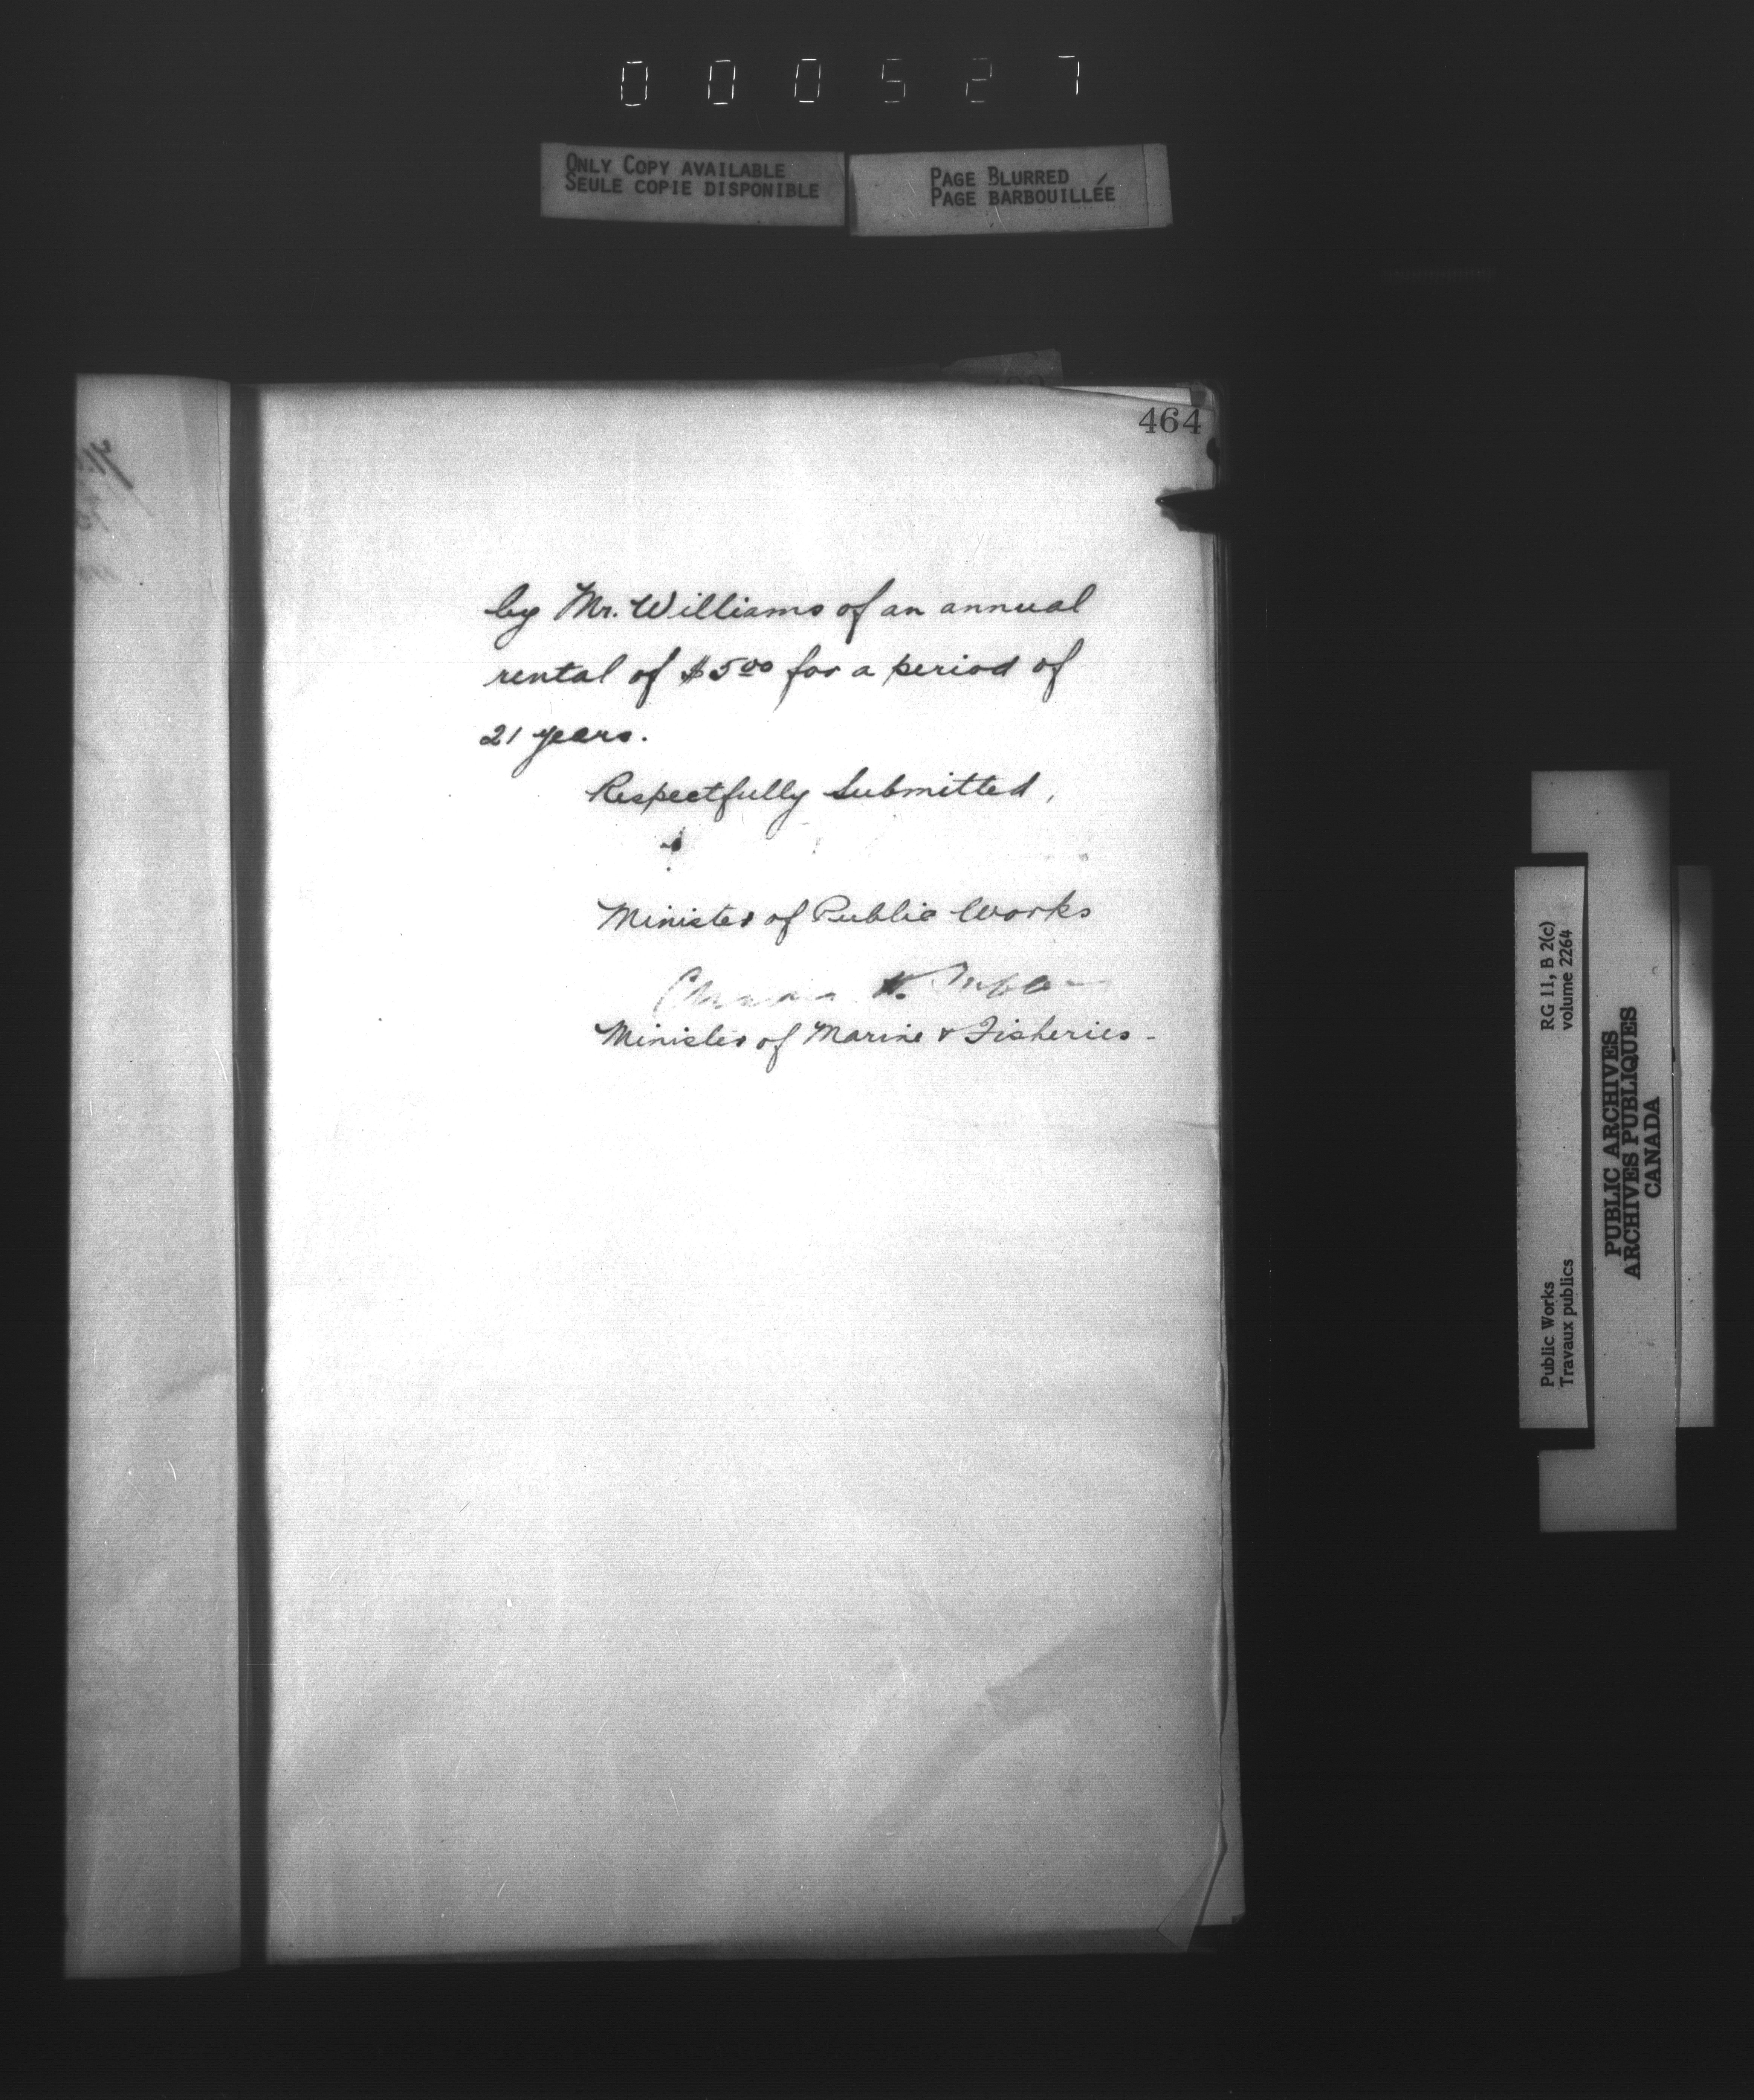 000527
ONLY COPY AVAILABLE
SEULE COPIE DISPONIBLE
PAGE BLURRED
PAGE BARBOUILLÉE
464
by Mr. Williams of an annual
rental of $5.00 for a period of
21 years.
Respectfully Submitted,
Minister of Public Works
H.
Minister of Marine & Fisheries-
RG 11, B 2(c)
volume 2264
Public Works
Travaux publics
PUBLIC ARCHIVES
ARCHIVES PUBLIQUES
CANADA